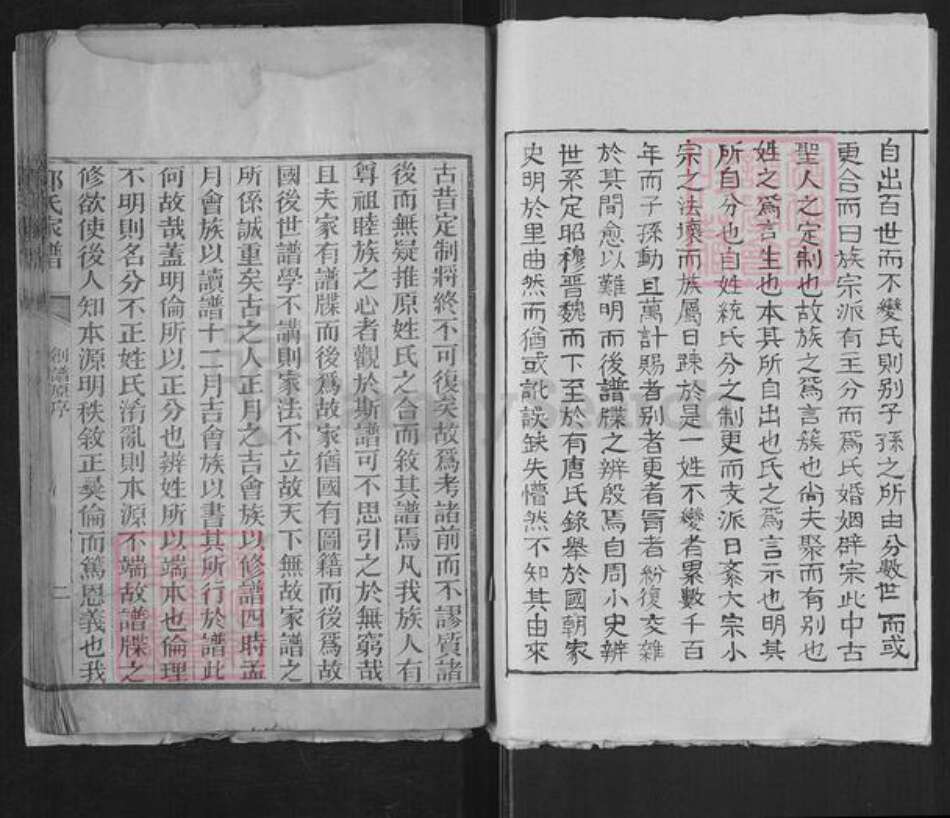 自出百世而不變氏則别子孫之所由分數世而或
更合而曰族宗派有主分而爲氏婚姻辟宗此中古
聖人之定制也故族之爲言簇也尚夫聚而有别也
姓之爲言生也本其所自出也氏之爲言示也明其
所自分也自姓統氏分之制更而支派日紊大宗小
宗之法壞而族屬日疎於是一姓不變者累數千百
年而子孫動且萬計賜者别者更者冒者紛復交雜
於其間愈以難明而後譜牒之辨殷焉自周小史辨
世系定昭穆晋魏而下至於有唐氏錄舉於國朝家
史明於里曲然而猶或訛誤缺失懵然不知其由來
古昔定制將終不可復矣故爲考諸前而不謬質諸
後而無疑推原姓氏之合而敘其譜焉凡我族人有
尊祖睦族之心者觀於斯譜可不思引之於無窮哉
且夫家有譜牒而後爲故家猶國有圖籍而後爲故
國後世譜學不講則家法不立故天下無故家譜之
所係誠重矣古之人正月之吉會族以修譜四時孟
月會族以讀譜十二月吉會族以書其所行於譜此
何故哉蓋明倫所以正分也辨姓所以端本也倫理
不明則名分不正姓氏淆亂則本源不端故譜牒之
修欲使後人知本源明秩敘正彝倫而篤恩義也我
氏家譜
創譜原序
二